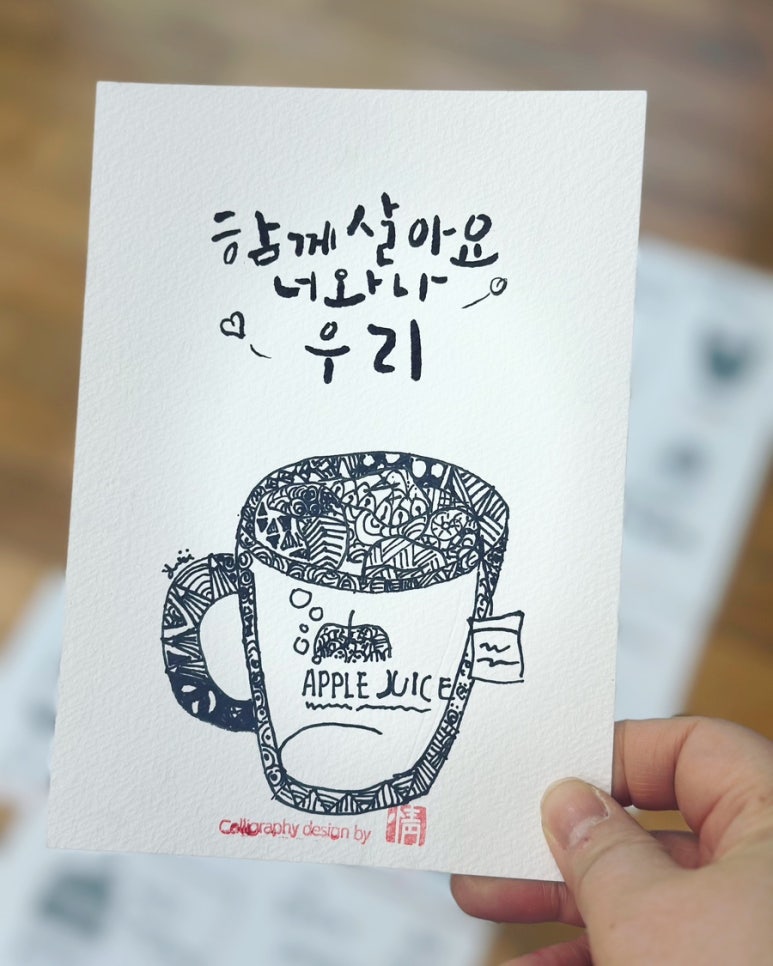 함께 살아요
너와 나
우리
APPLE JUICE
Calligraphy design by 情